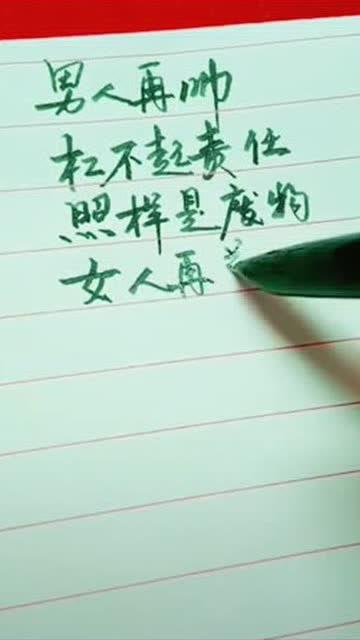 男人再帅
杠不起责任
照样是废物
女人再